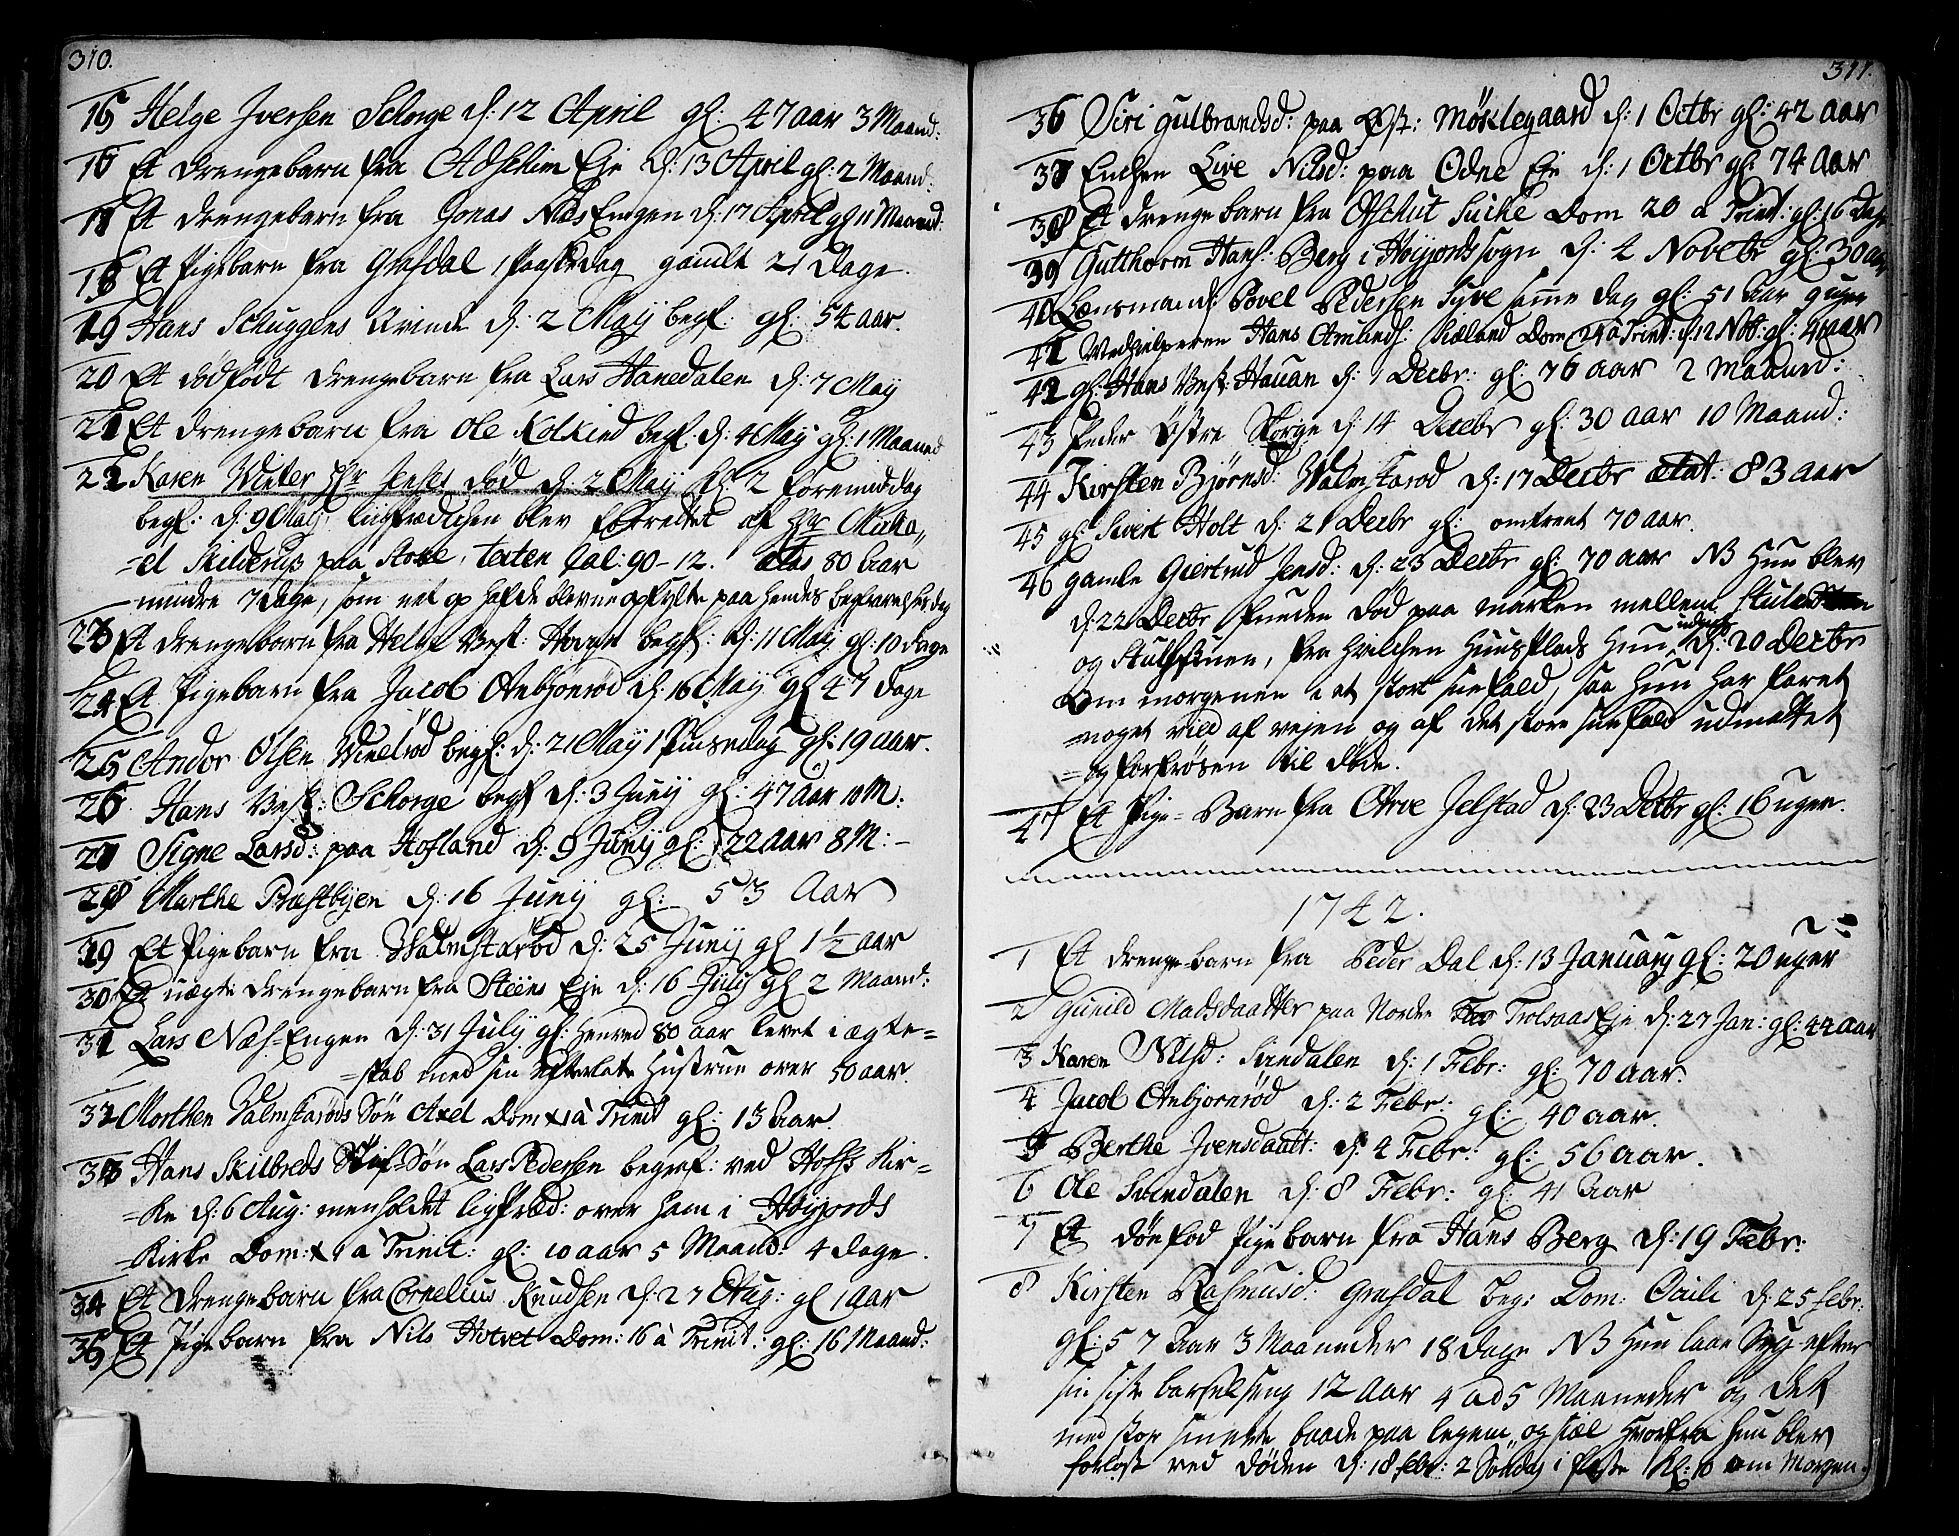 310.
15 Helge Iversen Schorge d: 12 April gl: 47 aar 3 Maand:
16 Et drengebarn fra Adsheim Eje d: 13 April gl: 2 Maand:
17 Et drengebarn fra Jonas Næs Engen d: 17 April gl 11 Maaned:
18 Et Pigebarn fra Grefsdal 1 Paaskedag gamlt 21 Dage.
19 Hans Schuggens Qvinde d: 2 Maij begf: gl: 54 aar.
20 Et dødfødt drengebarn fra Lars Hanedalen d: 7 Maij
21 Et drengebarn fra Ole Kolkind begf. d: 4 Maij gl: 1 Maaned
22 Karen Winter Hr Jenses død d: 2 Maij Kl 2 formiddag
begf. d: 9 Maij, liigprædichen blev forrettet af Hr Micha„
=el Skilderup paa Stokke, texten Psal: 90-12. ætas 80 Aar
mindre 7 dage, som net op hafde blevne opfylte paa hendes begravelses dag
23 Et drengebarn fra Helge Vest: Hougn begf: d: 11 Maij gl: 10 dage
24 Et Pigebarn fra Jacob Anbjonrød d: 16 Maij gl 47 dage
25 Andor Olsen Vivelrød begf: d: 21 Maij 1 Pinsedag gl: 19 aar.
26. Hans Vest: Schorge begf d: 3 Junij gl: 47 aar 10 M:
27 Signe Larsd: paa Hofland d: 9 Junij gl: 22 aar 8 M: -
28 Marthe Præstbyen d: 16 Junij gl: 53 Aar
29 Et Pigebarn fra Walmstarød d: 25 Junij gl 1½ aar
30 Et uægte drengebarn fra Steens Eje d: 16 Julij gl 2 Maand:
31 Lars Næss=Engen d: 31 Julij gl: henved 80 aar levet i ægte=
=skab med sin efterlatte Hustrue over 50 aar.
32 Morthen Valmstarøds Søn Axel Dom X à Trinit gl: 13 Aar.
33 Hans Skilbreds Stif=Søn Lars Pedersen begraf: ved Hoffs Kir=
=ke d: 6 Aug: men holdet ligpræd: over ham i Høyjords
=Kirke Dom: X à Trinit: gl: 10 aar 5 Maand: 4 dage.
34 Et Drengebarn fra Cornelius Knudsen d: 27 Aug: gl 1 aar
35 Et Pigebarn fra Nils Hotvet Dom: 16 à Trinit: gl: 16 Maand:
311.
36 Siri Gulbrandsd: paa Øst: Møklegaard d: 1 Octbr gl: 42 aar
37 Enchen Live Nilsd: paa Odne Eje d: 1 Octbr gl: 74 aar
38 Et drengebarn fra Dom 20 à Trint: gl: 16 Dage
39 Gutthorm Hans: Berg i Høyjords sogn d: 2 Novebr gl: 30 aar
40 Lænsmand: Povel Pedersen Syve samme dag gl: 51 Aar 9 uger
41 Medhielperen Hans Amundss: Sæland Dom 24 à Trint: d: 12 Nov: gl: 41 aar
42 gl: Hans Vest: Hauan d: 1 Decbr: gl: 76 aar 2 Maaned:
43 Peder Østre Skorge d: 14 Decebr gl: 30 aar 10 Maand:
44 Kirsten Bjørnsd: Walmstarød d: 17 Decbr ætat: 83 aar
45 gl: Sivert Holt d: 21 Decbr gl: omtrent 70 aar.
46 gamle Giertrud Jensd: d: 23 Decbr gl: 70 aar NB Hun blev
d: 22 Decbr funden død paa marken mellem
og , fra hvilchen Huusplads hun udgik d: 20 Decbr
Om morgenen i et stort sneefald, saa hun har faret
noget vild af vejen og af det store sneefald udmattet
=og forfrøsen til døde.
47 Et Pige=Barn fra Arve Jelstad d: 23 Decbr gl: 16 uger.
1742.
1 Et drenge=barn fra Peder Dal d: 13 January gl: 20 uger
2 Gunild Madsdaatter paa Nordre Trolsaas Eje d: 27 Jan: gl: 44 aar
3 Karen Nilsd: Svindalen d: 1 Febr: gl: 70 aar.
4 Jacob Anbjonrød d: 2 Febr: gl: 40 aar.
5 Berthe Iversdaatt: d: 4 Febr: gl: 56 aar.
6 Ole Svindalen d: 8 Febr: gl: 41 Aar
7 Et dønfød Pigebarn fra Hans Berg d: 19 Febr:
8 Kirsten Rasmusd: Grefsdal beg: Dom: Oculi d: 25 febr:
gl: 57 Aar 3 Maaneder 18 dage NB Hun laae syg efter
sin siste barselseng 12 Aar 4 ad 5 Maaneder og det
med stor smerte baade paa legem og siæl hvorfra hun blev
forløst ved døden d: 18 febr: 2 Søndag i faste Kl: 10 om Morgen.